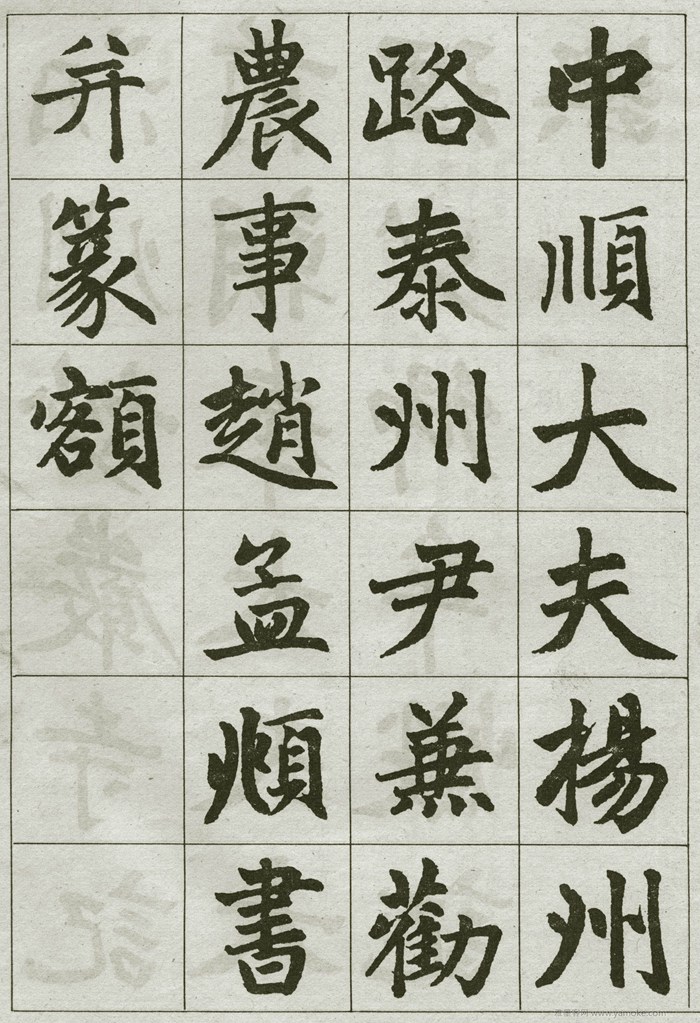 中順大夫楊州
路泰州尹兼勸
農事趙孟頫書
并篆額
www.yamoke.com